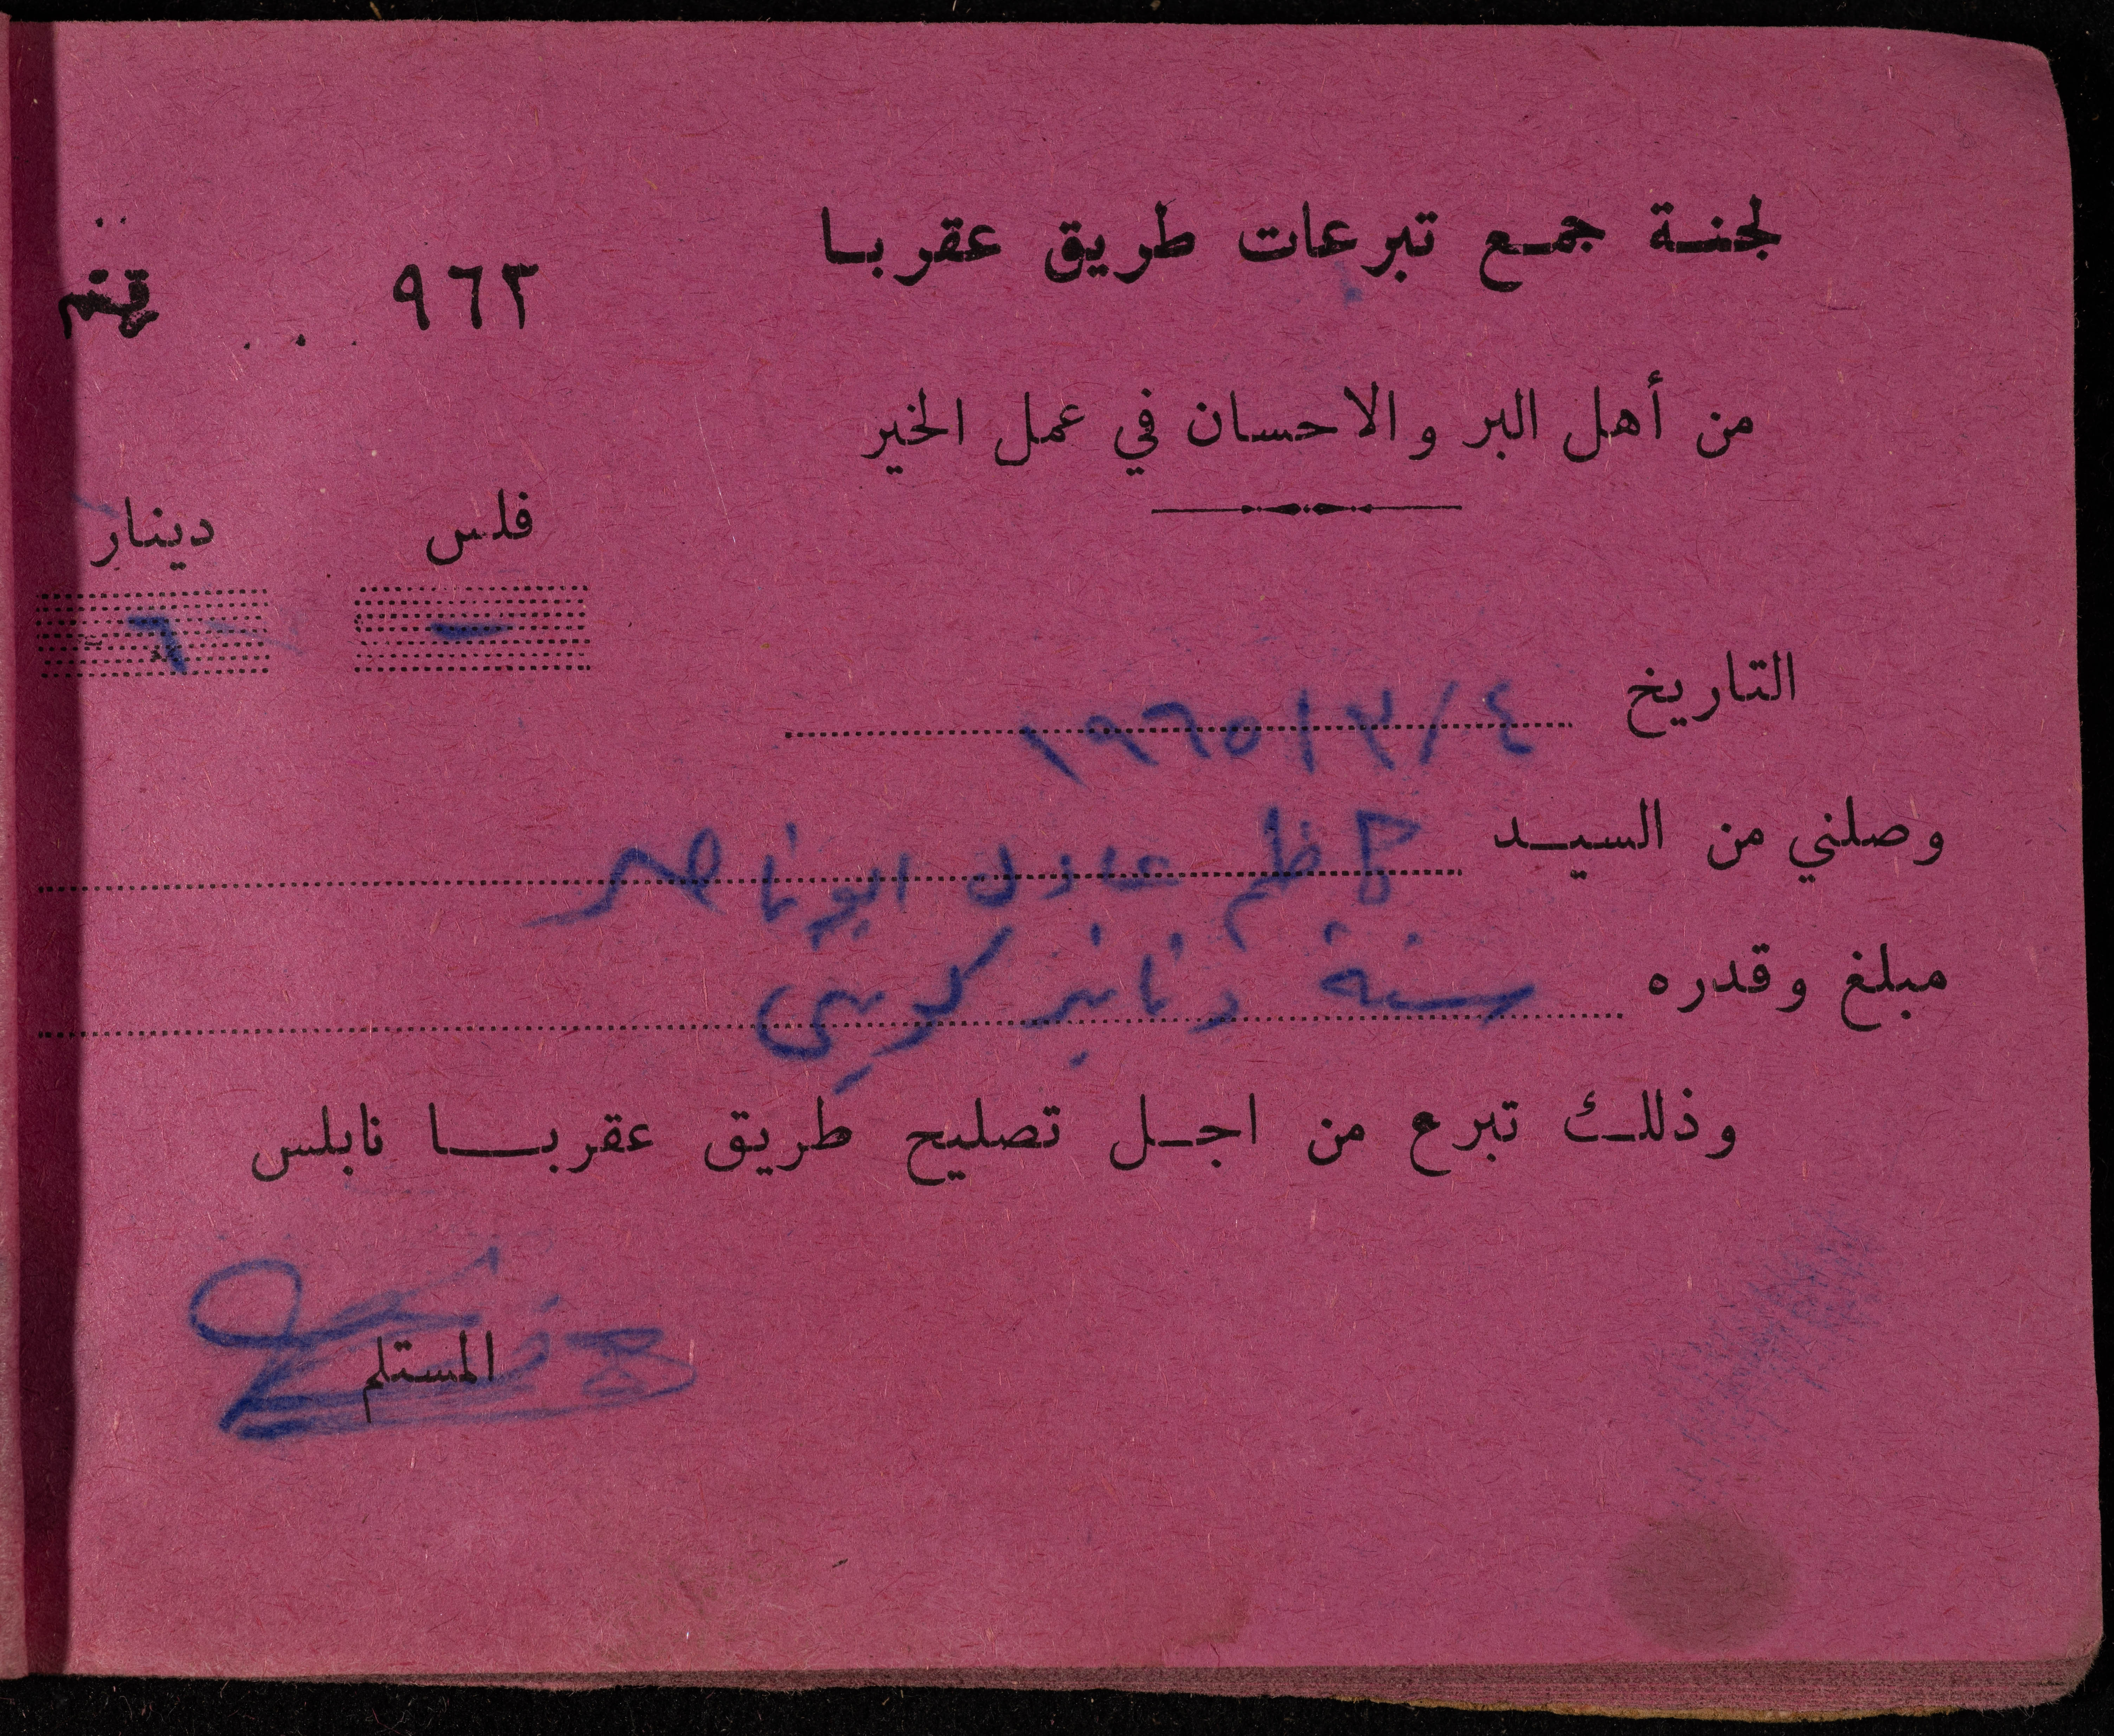 لجنة جمع تبرعات طريق عقربا
٩٦٣
من أهل البر والاحسان في عمل الخير
فلس دينار
- ٦
التاريخ ٤/٣/١٩٦٥
وصلني من السيد كاظم عادل ابو ناصر
مبلغ وقدره ستة دنانير كويتي
وذلك تبرع من اجل تصليح طريق عقربا نابلس
المستلم